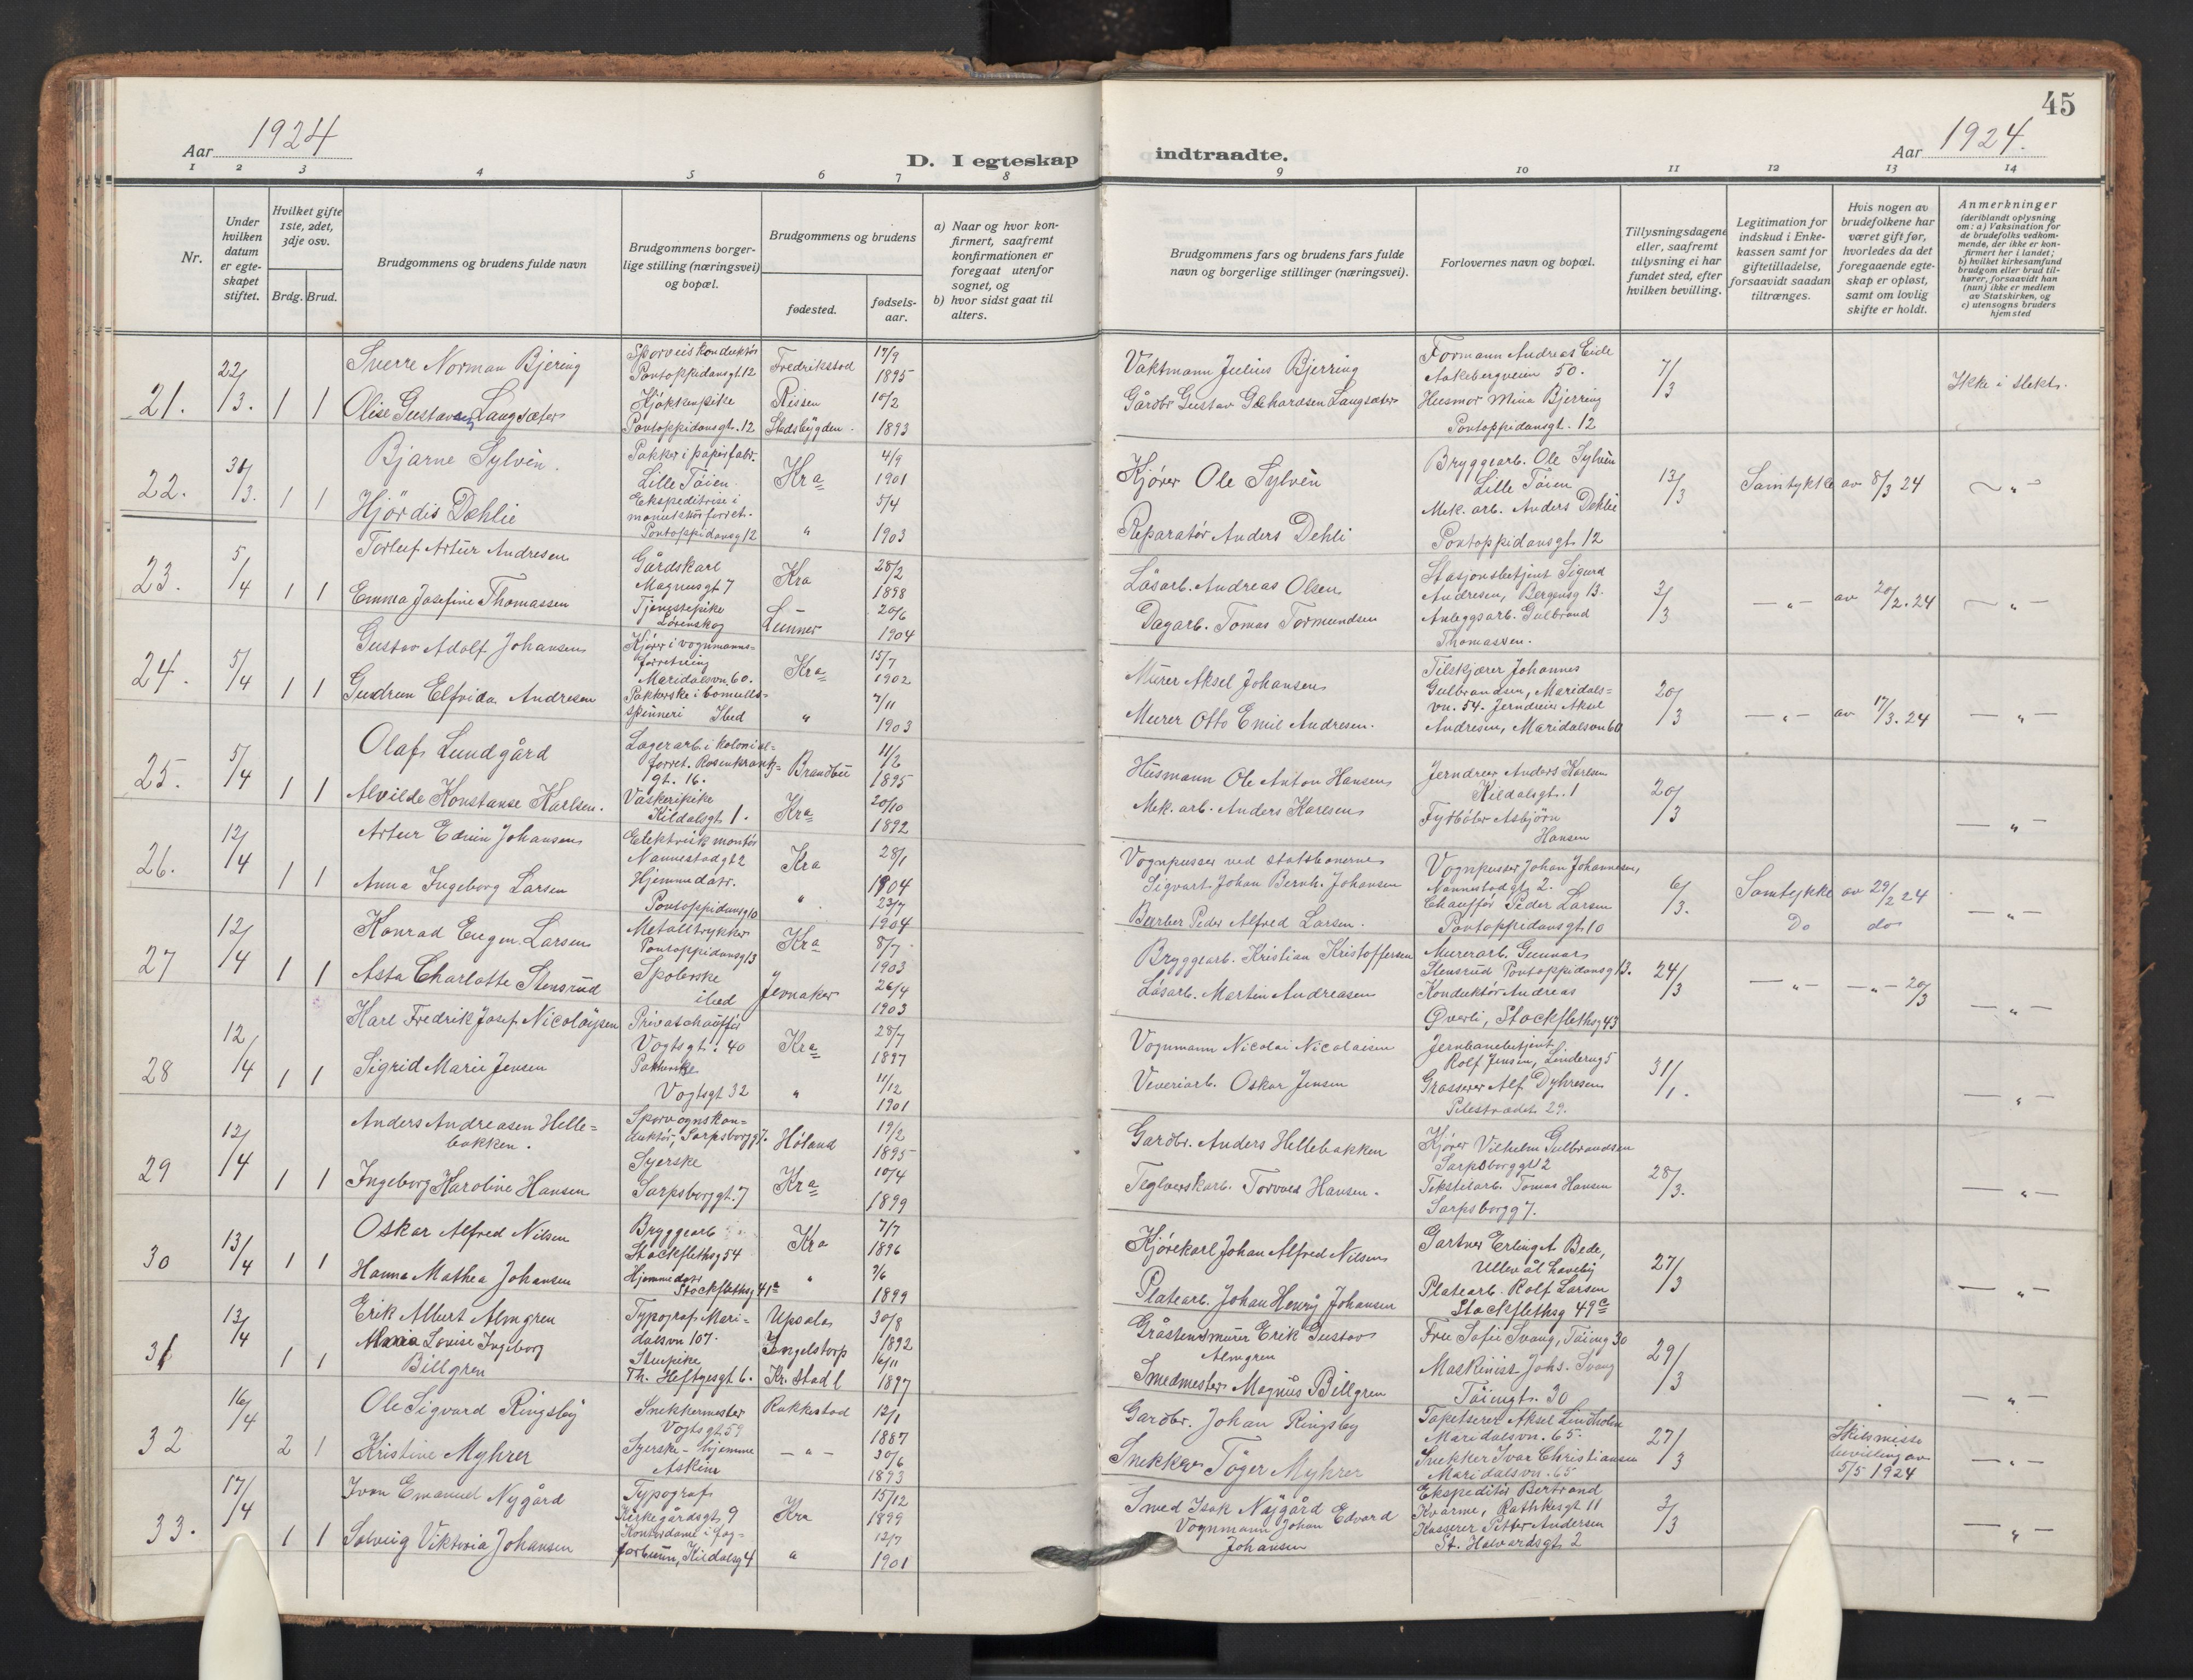 Aar 1924
D. I egteskap
1 2 3 4 5 6 7 8
Nr.
Under hvilken datum er egteskapet stiftet.
Hvilket gifte 1ste, 2det, 3dje osv.
Brdg. Brud.
Brudgommens og brudens fulde navn
Brudgommens borgerlige stilling (næringsvei) og bopæl.
Brudgommens og brudens
fødested.
fødselsaar.
a) Naar og hvor konfirmert, saafremt konfirmationen er foregaat utenfor sognet, og
b) hvor sidst gaat til alters.
21. 22/3. 1 1
Sverre Norman Bjering
Sporveiskonduktör Pontoppidansgt. 12
Fredrikstad
17/9 1895
Olise Gustavsen Langsæter
Kjökkenpike Pontoppidansgt. 12
Rissen Stadsbygden.
10/2 1893
22. 30/3. 1 1
Bjarne Sylvén.
Pakker i papirfabr. Lille Töien
Kra
4/9 1901
Hjördis Dehlie
Ekspeditrise i manufaktforret. Pontoppidansg 12
"
5/4 1903
23. 5/4 1 1
Torleif Artur Andresen
Gårdskarl Magnusgt 7
Kra
28/2 1898
Emma Josefine Thomassen
Tjenestepike Lörenskog
Lunner
20/6 1904
24. 5/4 1 1
Gustav Adolf Johansen
Kjörer i vognmannsforretning Maridalsvn. 60.
Kra
15/7 1902
Gudrun Elfrida Andresen
Pakkerske i bomullsspinneri Ibid
"
7/11 1903
25. 5/4 1 1
Olaf Lundgård
Lagerarb. i kolonialforret. Rosenkrantzgt. 16.
Brandbu
11/2 1895
Alvilde Konstanse Karlsen.
Vaskeripike Kildalsgt 1.
Kra
20/10 1892
26. 12/4 1 1
Artur Edvin Johansen
Elektrisk montör Nannestadgt 2
Kra
28/1 1904
Anna Ingeborg Larsen
Hjemmedatr. Pontoppidansg 10
"
23/7 1904
27 12/4 1 1
Konrad Eugen Larsen
Metalltrykker Pontoppidansg 13
Kra
8/7 1903
Asta Charlotte Stensrud
Spolerske ibid
Jevnaker
26/4 1903
28 12/4 1 1
Karl Fredrik Josef Nicolaysen
Privatchaufför Vogtsgt. 40
Kra
28/7 1897
Sigrid Marie Jensen
Vogtsgt 32
"
11/12 1901
29 12/4 1 1
Anders Andreasen Hellebakken.
Sporvognskonduktör, Sarpsborggt 7.
Höland
19/2 1895
Ingeborg Karoline Hansen
Syerske Sarpsborggt. 7
Kra
10/4 1899
30 13/4 1 1
Oskar Alfred Nilsen
Bryggearb Stockflethsg 54
Kra
7/7 1896
Hanna Mathea Johansen
Hjemmedatr Stockflethsg 41a
"
2/6 1899
31 13/4 1 1
Erik Albert Almgren
Typograf Maridalsvn 107.
Upsala
30/8 1892
Maria Lovise Ingeborg Billgren
Stuepike Th. Heftyesgt. 6.
Ingelstorp Kr. stad l
16/11 1897
32 16/4 2 1
Ole Sigvard Ringsby
Snekkermester Vogtsgt. 59
Rakkestad
12/1 1887
Kristine Myhrer
Syerske – hjemme Askim
— " —
30/6 1893
33. 17/4 1 1
Ivan Emanuel Nygård
Typograf Kirkegårdsgt. 9
Kra
15/12 1899
Solveig Viktoria Johansen
Kontordame i fagforbunn, Kildalsg 4
"
12/7 1901
45
indtraadte.
Aar 1924.
9 10 11 12 13 14
Brudgommens fars og brudens fars fulde navn og borgerlige stillinger (næringsvei).
Forlovernes navn og bopæl.
Tillysningsdagene eller, saafremt tillysning ei har fundet sted, efter hvilken bevilling.
Legitimation for indskud i Enkekassen samt for giftetilladelse, forsaavidt saadan tiltrænges.
Hvis nogen av brudefolkene har været gift før, hvorledes da det foregaaende egteskap er opløst, samt om lovlig skifte er holdt.
Anmerkninger
(deriblandt oplysning om: a) Vaksination for de brudefolks vedkommende, der ikke er konfirmert her i landet;
b) hvilket kirkesamfund brudgom eller brud tilhører, forsaavidt han (hun) ikke er medlem av Statskirken, og
c) utensogns bruders hjemsted
Vaktmann Julius Bjerring
Gårdbr Gustav Gerhardsen Langsæter
Formann Andreas Eide Aakebergveien 50.
Husmor Mina Bjerring Pontoppidansgt. 12
7/3
Ikke i slekt.
Kjörer Ole Sylvén
Reparatör Anders Dehli
Bryggearb. Ole Sylvén Lille Töien
Mek. arb. Anders Dehlie Pontoppidansgt. 12
13/3
Samtykke av 8/3 24
— " —
Låsarb. Andreas Olsen
Dagarb. Tomas Tormundsen
Stasjonsbetjent Sigurd Andresen, Bergensg 13.
Anleggsarb. Gulbrand Thomassen.
3/3
— " — av 20/2. 24
— " —
Murer Aksel Johansen
Murer Otto Emil Andresen.
Tilskjærer Johannes Gulbrandsen, Maridalsvn. 54. Jerndreier Aksel Andresen, Maridalsvn 60
20/3
— " — av 17/3. 24
— " —
Husmann Ole Anton Hansen
Mek. arb. Anders Karlsen
Jerndreier Anders Karlsen Kildalsgt. 1
Fyrböter Asbjörn Hansen
20/3
— " —
Vognpusser ved statsbanerne Sigvart Johan Bernh. Johansen
Barber Peder Alfred Larsen.
Vognpusser Johan Johannesen, Nannestadgt 2.
Chaufför Peder Larsen Pontoppidansgt 10
6/3.
Samtykke av 29/2 24
Do do
— " —
Bryggearb. Kristian Kristoffersen
Låsarb. Martin Andreasen
Murerarb. Gunnar Stensrud Pontoppidansg 13.
Konduktör Andreas Øverli, Stockflethsg 43
24/3
— " — — " — 20/3
— " —
Vognmann Nicolai Nicolaisen
Veveriarb. Oskar Jensen
Jernbanebetjent Rolf Jensen, Linderug 5
Grosserer Alf Dyhresen Pilestrædet 29.
31/1.
— " —
Gardbr. Anders Hellebakken
Teglverksarb. Torvald Hansen.
Kjörer Vilhelm Gulbrandsen Sarpsborggt 2
Tekstilarb. Tomas Hansen Sarpsborgg 7.
28/3.
— " —
Kjörekarl Johan Alfred Nilsen
Platearb. Johan Henry Johansen
Gartner Erling A. Bede, Ullevål haveby
Platearb. Rolf Larsen Stockflethsg 49c
27/3
— " —
Gråstensmurer Erik Gustav Almgren
Smedmester Magnus Billgren
Fru Sofie Svang, Töieng 30
Maskinist Johs. Svang Töiengt. 30
29/3
— " —
Gardbr. Johan Ringsby
Snekker Töger Myhrer
Tapetserer Aksel Lindholm Maridalsvn. 65.
Snekker Ivar Christiansen Maridalsvn. 65
27/3
Skilsmissebevilling av 5/5 1924
— " —
Smed Isak Nygård
Vognmann Johan Edvard Johansen
Ekspeditör Bertrand Kvarme, Rathkesgt 11
Kasserer Petter Andersen St. Halvardsgt. 2
3/3
— " —